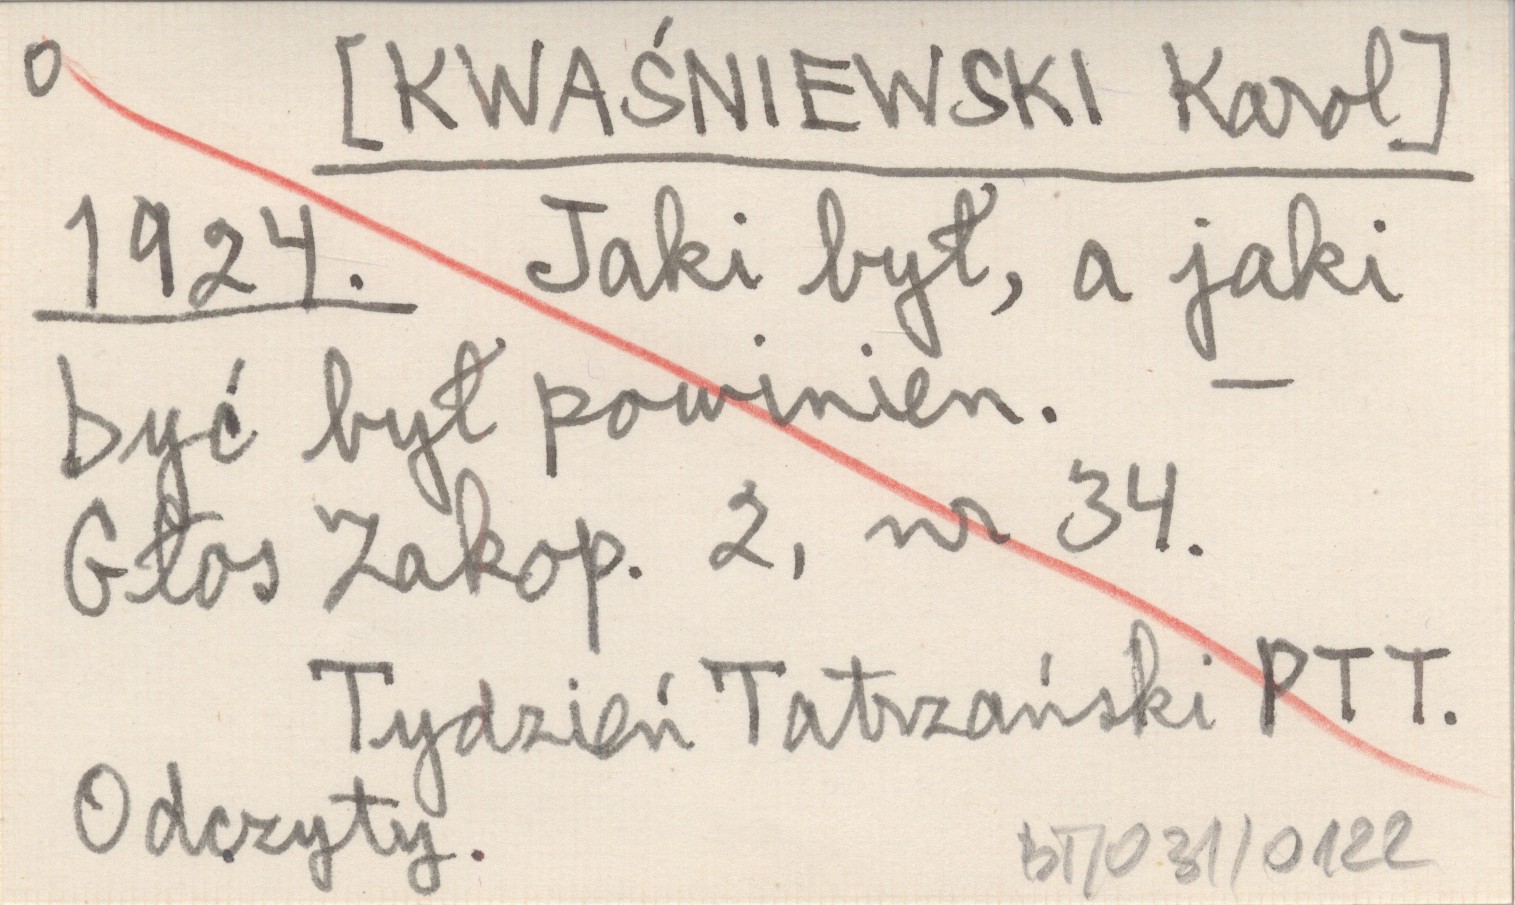 0 [KWAŚNIEWSKI Karol]
1924. Jaki był, a jaki
być był powinien. —
Głos Zakop. 2, nr 34.
Tydzień Tatrzański PTT.
Odczyty.
bT/031/0122